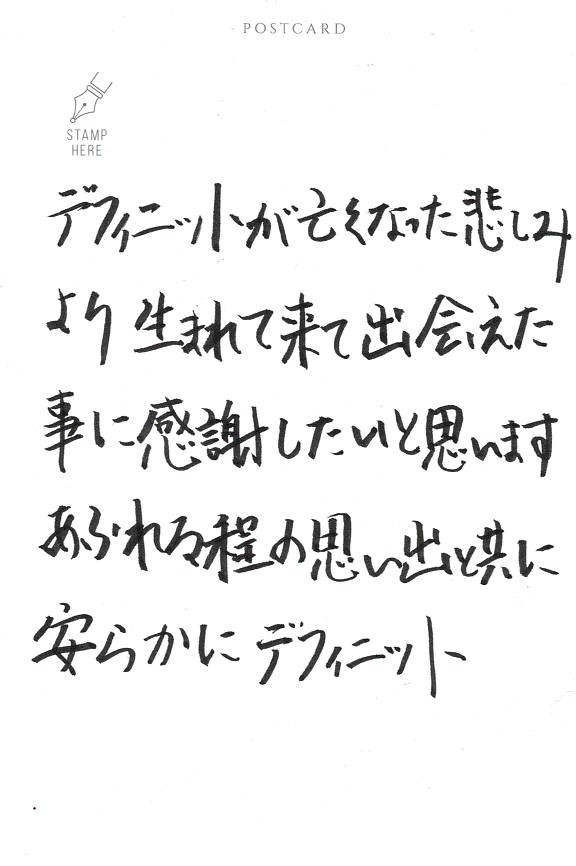 POSTCARD
STAMP
HERE
デフィニットが亡くなった悲しみ
より生まれて来て出会えた
事に感謝したいと思います
あふれる程の思い出と共に
安らかに デフィニット